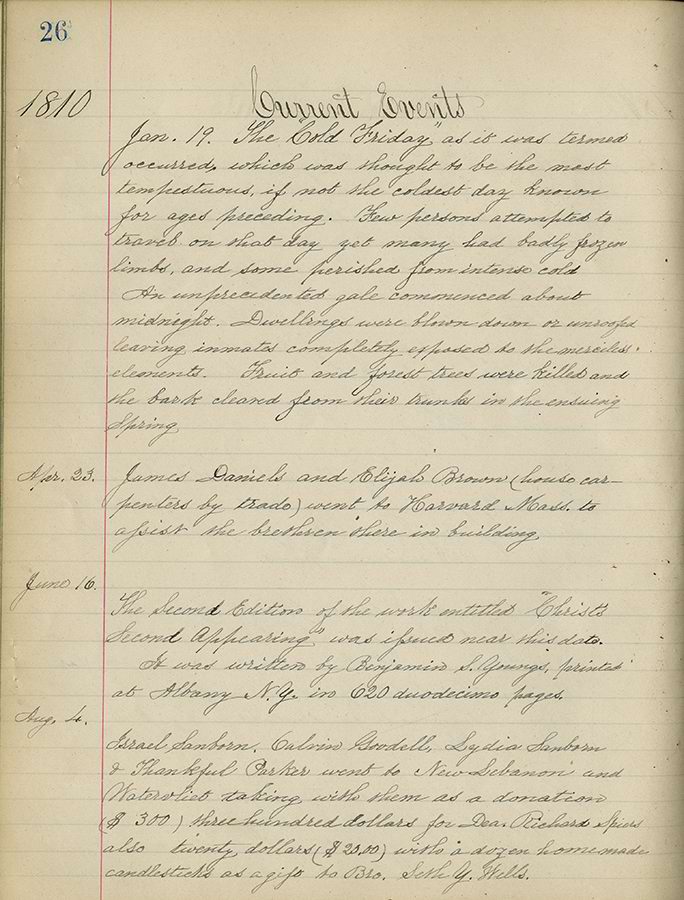 26
1810
Current Events
Jan. 19. The "Cold Friday" as it was termed
occurred, which was thought to be the most
tempestuous, if not the coldest day known
for ages preceding. Few persons attempted to
travel on that day yet many had badly frozen
limbs, and some perished from intense cold
An unprecedented gale commenced about
midnight. Dwellings were blown down or unroofed
leaving inmates completely exposed to the merciless
elements. Fruit and forest trees were killed and
the bark cleared from their trunks in the ensuing
Spring
Apr. 23. James Daniels and Elijah Brown (house car-
penters by trade) went to Harvard Mass. to
assist the brethren there in building
June 16.
The Second Edition of the work entitled "Christ's
Second Appearing" was issued near this date.
It was written by Benjamin S. Youngs, printed
at Albany N.Y. in 620 duodecimo pages.
Aug. 4.
Israel Sanborn, Calvin Goodell, Lydia Sanborn
& Thankful Parker went to New Lebanon and
Watervliet taking with them as a donation
($ 300) three hundred dollars for Dea. Richard Spiers
also twenty dollars ($ 20.00) with a dozen home made
candlesticks as a gift to Bro. Seth Y. Wells.